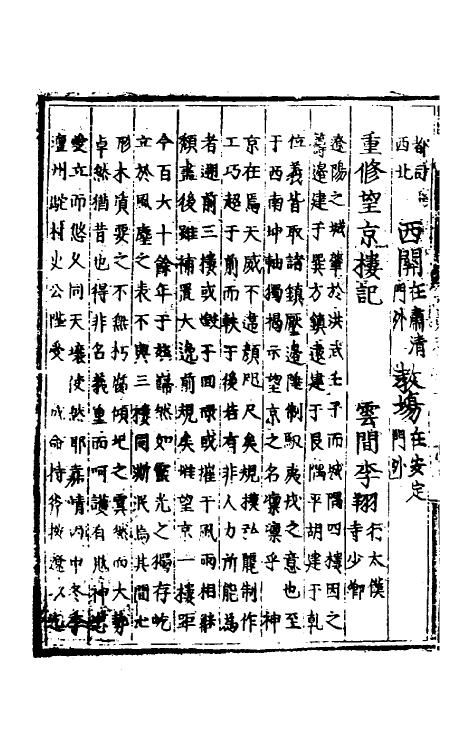 西北 西關在肅清門外 教場在安定門外
重修望京樓記 雲間李翔行太僕寺少卿
遼陽之城肇於洪武壬子而城隅四樓因之
籌邊建于巽方鎮遠建于艮隅平胡建于乾
位義皆取諸鎮壓邊陲制馭夷戎之意也至
于西南坤軸獨揭示望京之名凜凜乎神
京在焉天威不違顏咫尺矣規模弘麗制作
工巧超于前而軼于後若有非人力所能為
者邇前三樓或燬于回祿或摧于風雨相繼
頹盡後雖補置大遜前規矣惟望京一樓年
今百六十餘年于茲巋然如靈光之獨存屹
立於風塵之表不與三樓同漸泯焉其間七
形木質要之不無朽齧傾圯之虞然而大勢
卓然猶昔也得非名義重而呵護有鬼神
愛立而悠久同天壤使然耶嘉靖丙中冬季
澶州駝村史公陞受 成命持斧撫遼以